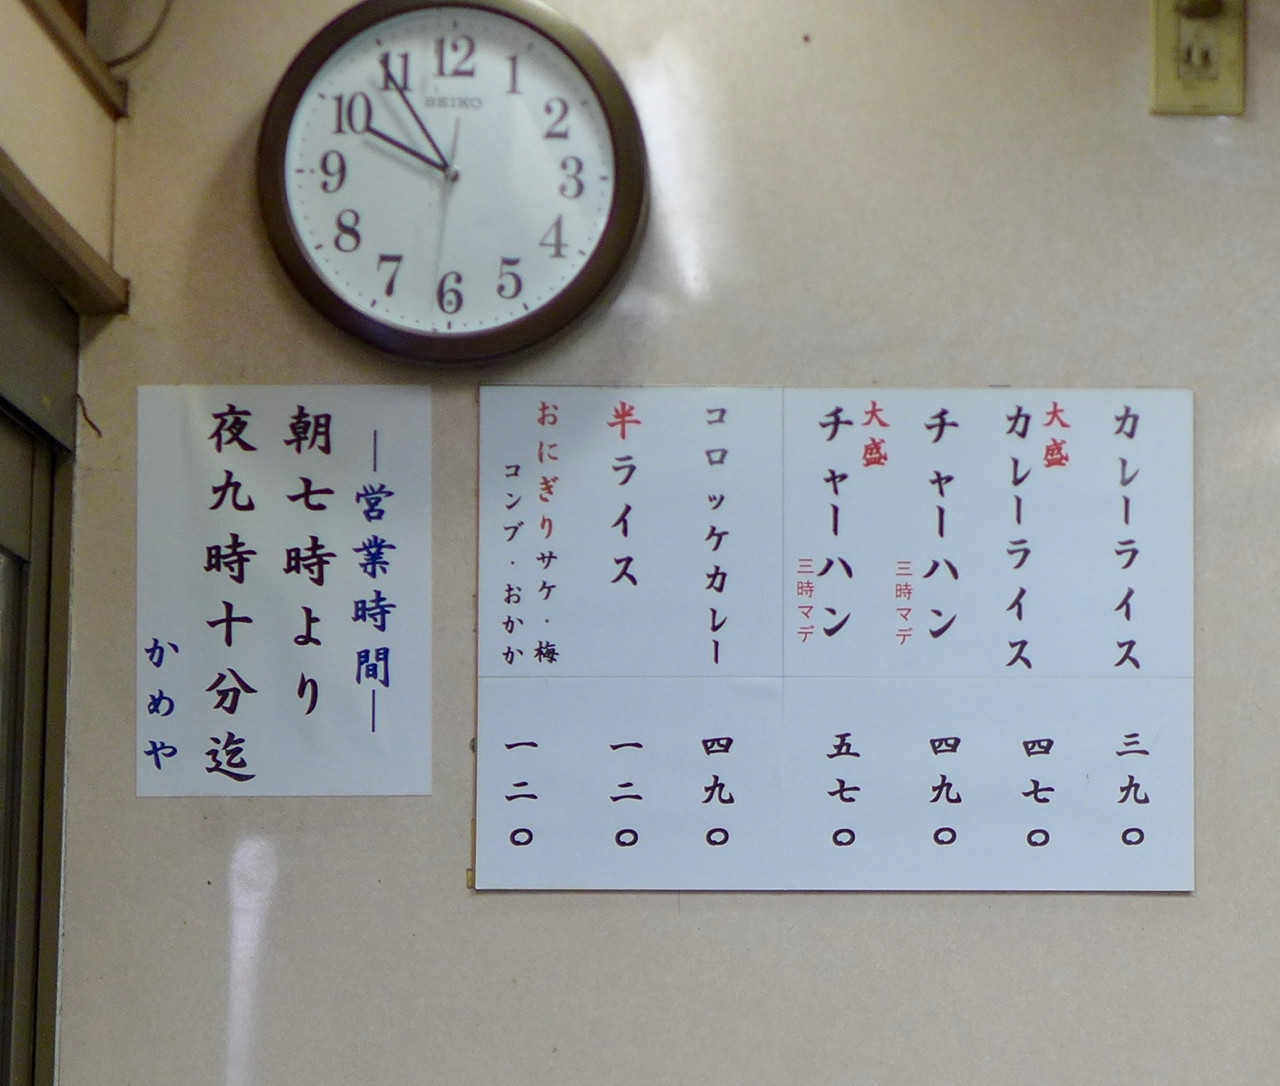 12
1
2
3
4
5
6
7
8
9
10
11
SEIKO
―営業時間―
朝七時より
夜九時十分迄
かめや
カレーライス 三九〇
大盛
カレーライス 四七〇
チャーハン 三時マデ 四九〇
大盛
チャーハン 三時マデ 五七〇
コロッケカレー 四九〇
半ライス 一二〇
おにぎり サケ・梅
コンブ・おかか 一二〇